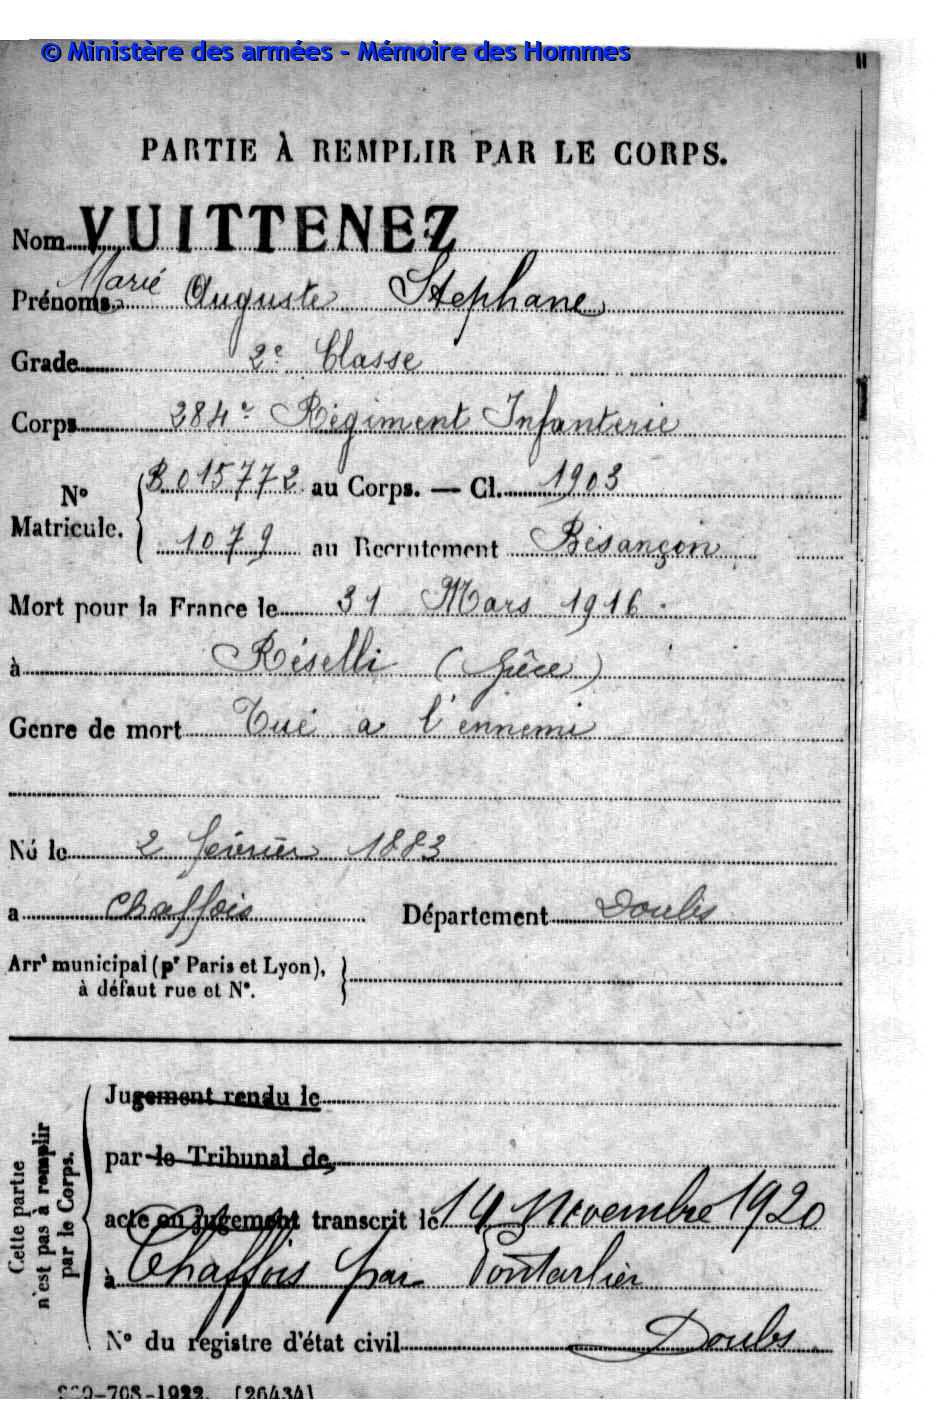 © Ministère des armées - Mémoire des Hommes
PARTIE À REMPLIR PAR LE CORPS.
Nom VUITTENEZ
Prénoms Marie Auguste Stephane
Grade 2e Classe
Corps 284e Régiment Infanterie
No Matricule. B 015772 au Corps. — Cl. 1903
1079 au Recrutement Besançon
Mort pour la France le 31 Mars 1916
à Réselli (Grêce)
Genre de mort Tué a l'ennemi
Né le 2 février 1883
a Chaffois Département Doubs
Arrt municipal (pr Paris et Lyon),
à défaut rue et No.
Cette partie
n'est pas à remplir
par le Corps.
Jugement rendu le
par le Tribunal de
acte ou jugement transcrit le 14 Novembre 1920
à Chaffois par Pontarlier
No du registre d'état civil Doubs
-708-1922. [26434]